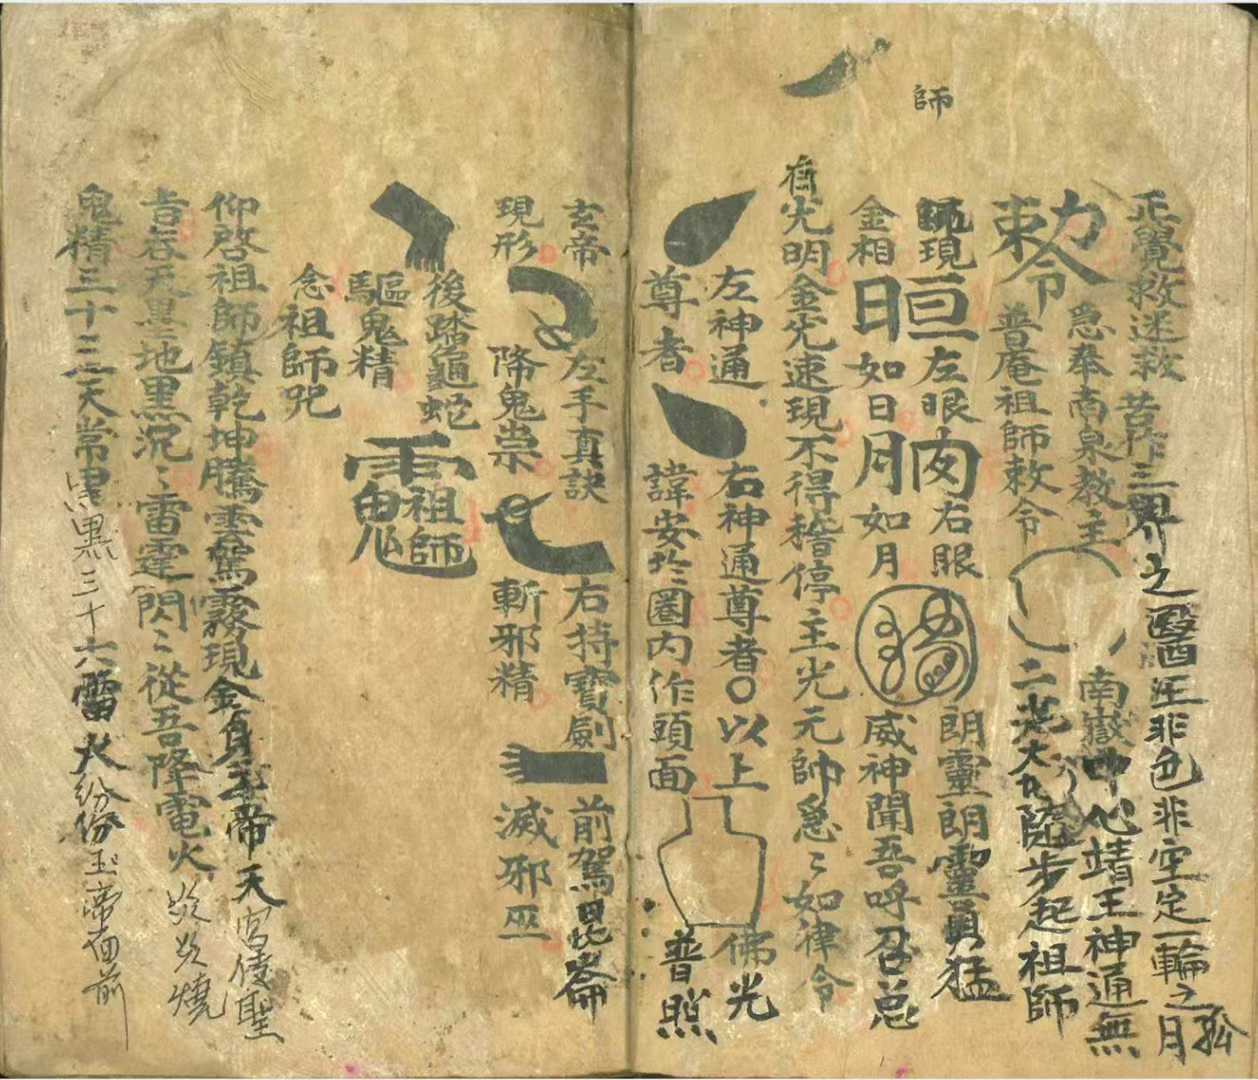 師
正覺救迷救苦作三界之醫王非色非空定一輪之孤月
急奉南泉教主
南嶽
心靖王神通無
勅令
普庵祖師敕令
二
大
隨步起祖師
現
左眼
右眼
朗靈朗靈勇猛
金相
日如日月如月
威神聞吾呼召急
有光明金光速現不得稽停主光元帥急〻如律令
左神通
尊者
右神通尊者〇以上
諱安於圈内作頭面
佛光
普照
玄帝
現形
左手真訣
降鬼祟
右持寶劍
斬邪精
前駕昆崙
滅邪巫
後踏龜蛇
驅鬼精
念祖師咒
祖師
仰啓祖師鎮乾坤騰雲駕霧現金身玉帝天
聖
吞天黑地黑沉〻雷霆閃〻從吾降電火
燒
鬼精三十三天常黑黑三十六雷火紛紛玉帝面前